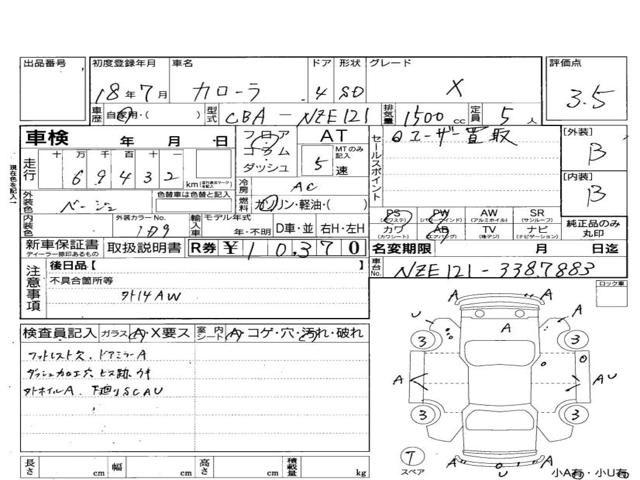 出品番号 初度登録年月 車名 ドア 形状 グレード 評価点
18年7月 カローラ 4 SD X 3.5
車歴 自家用・( ) 型式 CBA-NZE121 排気量 1500cc 定員 5人
車検 年 月 日 フロア コラム ダッシュ AT MTのみ記入 5速
セールスポイント ユーザー買取
[外装] B
[内装] B
走行 十 万 千 百 十 一
69432 km
冷房 AC
外装色 ベージュ 色替車は色替と記入
燃料 ガソリン・軽油・( )
内装色 外装カラーNo. 1D9 輸入車 モデル年式 年・不明 D車・並 右H・左H
PS (パワステ) PW (パワーウインド) AW (アルミホイル) SR (サンルーフ)
カワ (カワシート) AB (エアバッグ) TV (後デジ) ナビ (ナビゲーション)
純正品のみ丸印
新車保証書 ディーラー捺印あるもの 取扱説明書 R券 ¥10,370 名変期限 月 日迄
注意事項 後日品【 】
不具合箇所等
車台No. NZE121-3387883
ロック車
検査員記入 ガラス A・X要ス 室内シート A・コゲ・穴・汚れ・破れ
フットレスト欠.ドアミラーA
ダッシュカロエ穴 ビス跡
ホイルA. 下廻りSCAU
U A A
3 A 3
A A U
3 3
T スペア A U A
小A有・小U有
長さ cm 幅 cm 高さ cm 積載量 kg
現在色を記入